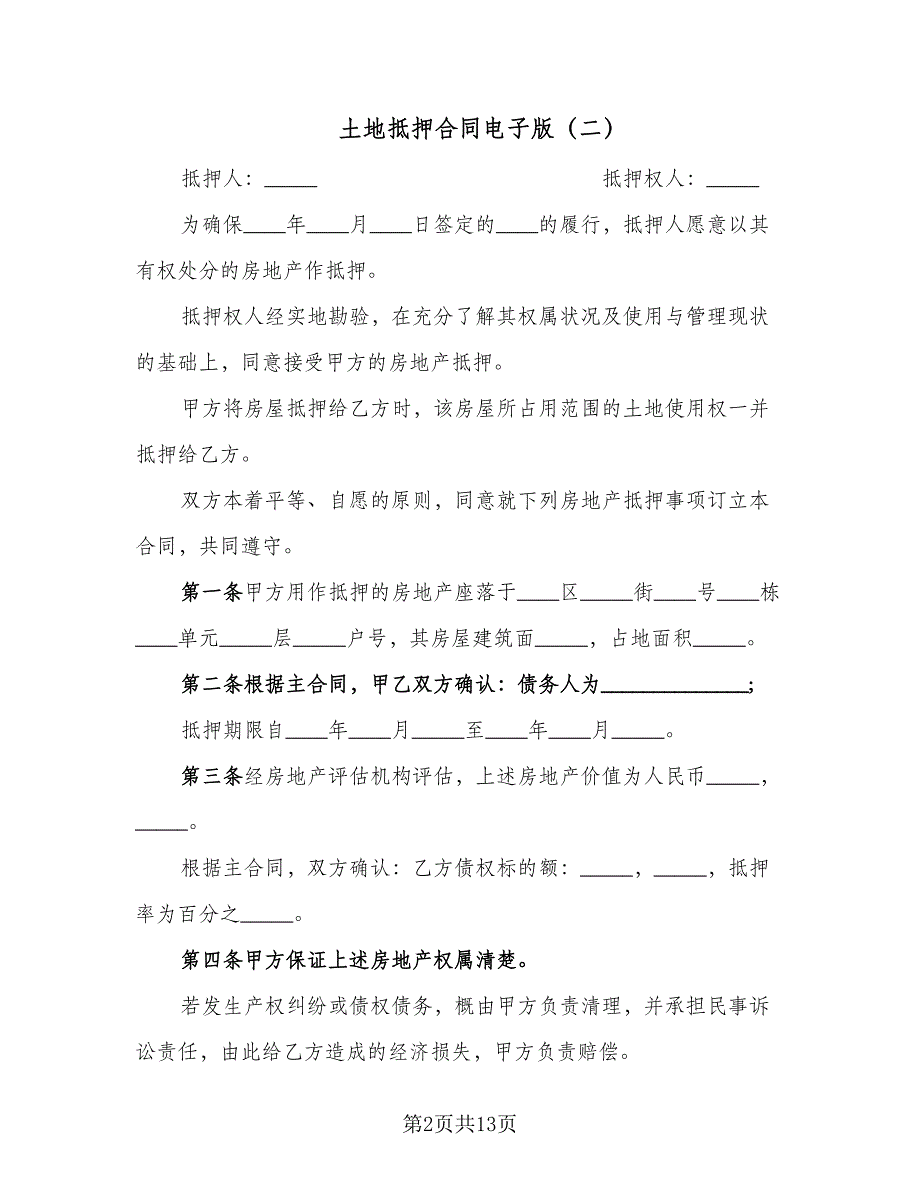 土地抵押合同电子版（二）
抵押人：_____ 抵押权人：_____
为确保____年____月____日签定的____的履行，抵押人愿意以其
有权处分的房地产作抵押。
抵押权人经实地勘验，在充分了解其权属状况及使用与管理现状
的基础上，同意接受甲方的房地产抵押。
甲方将房屋抵押给乙方时，该房屋所占用范围的土地使用权一并
抵押给乙方。
双方本着平等、自愿的原则，同意就下列房地产抵押事项订立本
合同，共同遵守。
第一条甲方用作抵押的房地产座落于____区_____街____号____栋
____单元_____层_____户号，其房屋建筑面_____，占地面积_____。
第二条根据主合同，甲乙双方确认：债务人为______________;
抵押期限自____年____月_____至____年____月_____。
第三条经房地产评估机构评估，上述房地产价值为人民币_____，
_____。
根据主合同，双方确认：乙方债权标的额：_____，_____，抵押
率为百分之_____。
第四条甲方保证上述房地产权属清楚。
若发生产权纠纷或债权债务，概由甲方负责清理，并承担民事诉
讼责任，由此给乙方造成的经济损失，甲方负责赔偿。
第2页共13页